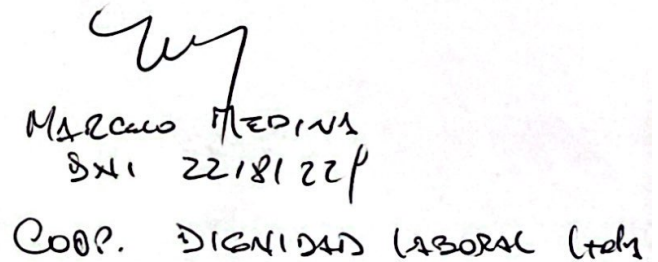 MARCELO MEDINA
DNI
COOP. DIGNIDAD LABORAL Ltda